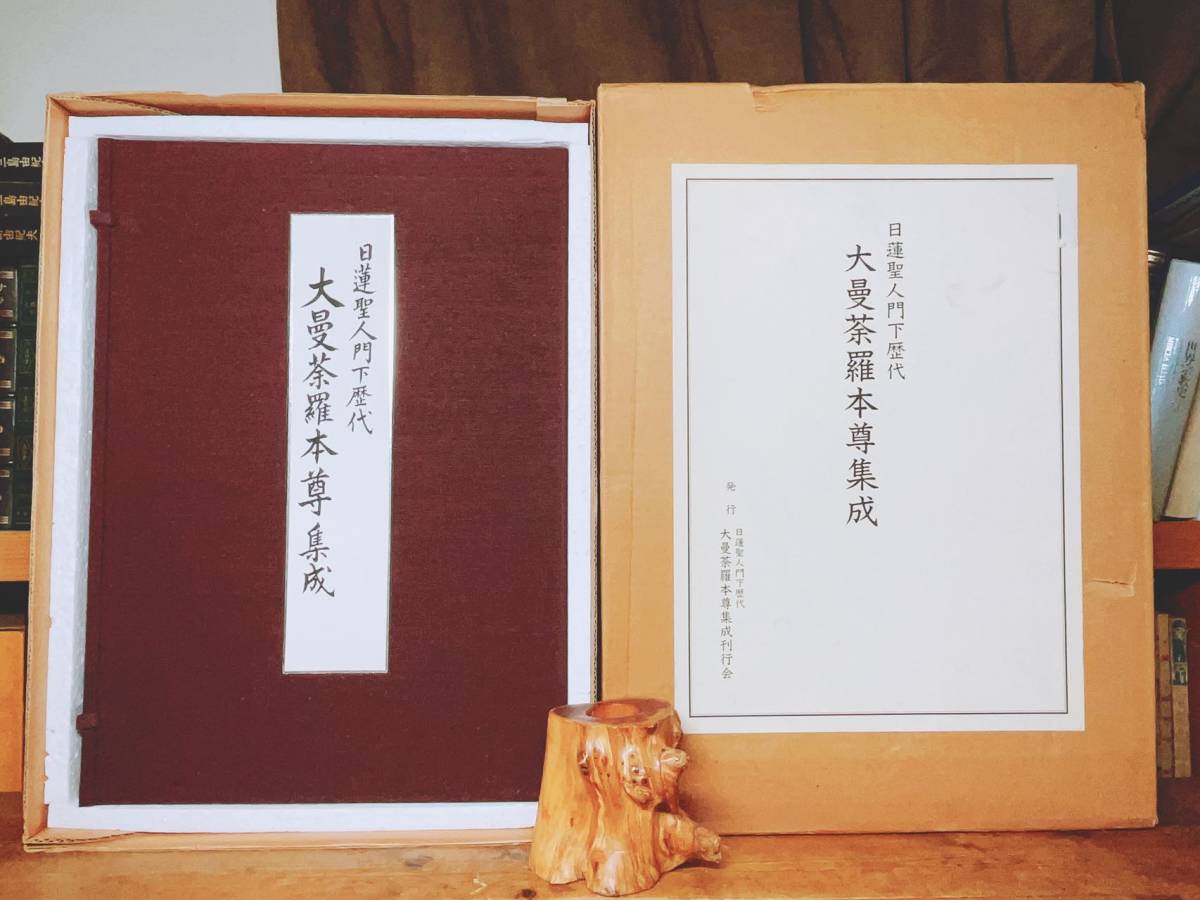 日蓮聖人門下歴代
大曼荼羅本尊集成
日蓮聖人門下歴代
大曼荼羅本尊集成
発行
日蓮聖人門下歴代
大曼荼羅本尊集成刊行会
三島由紀
三島由紀
由紀夫